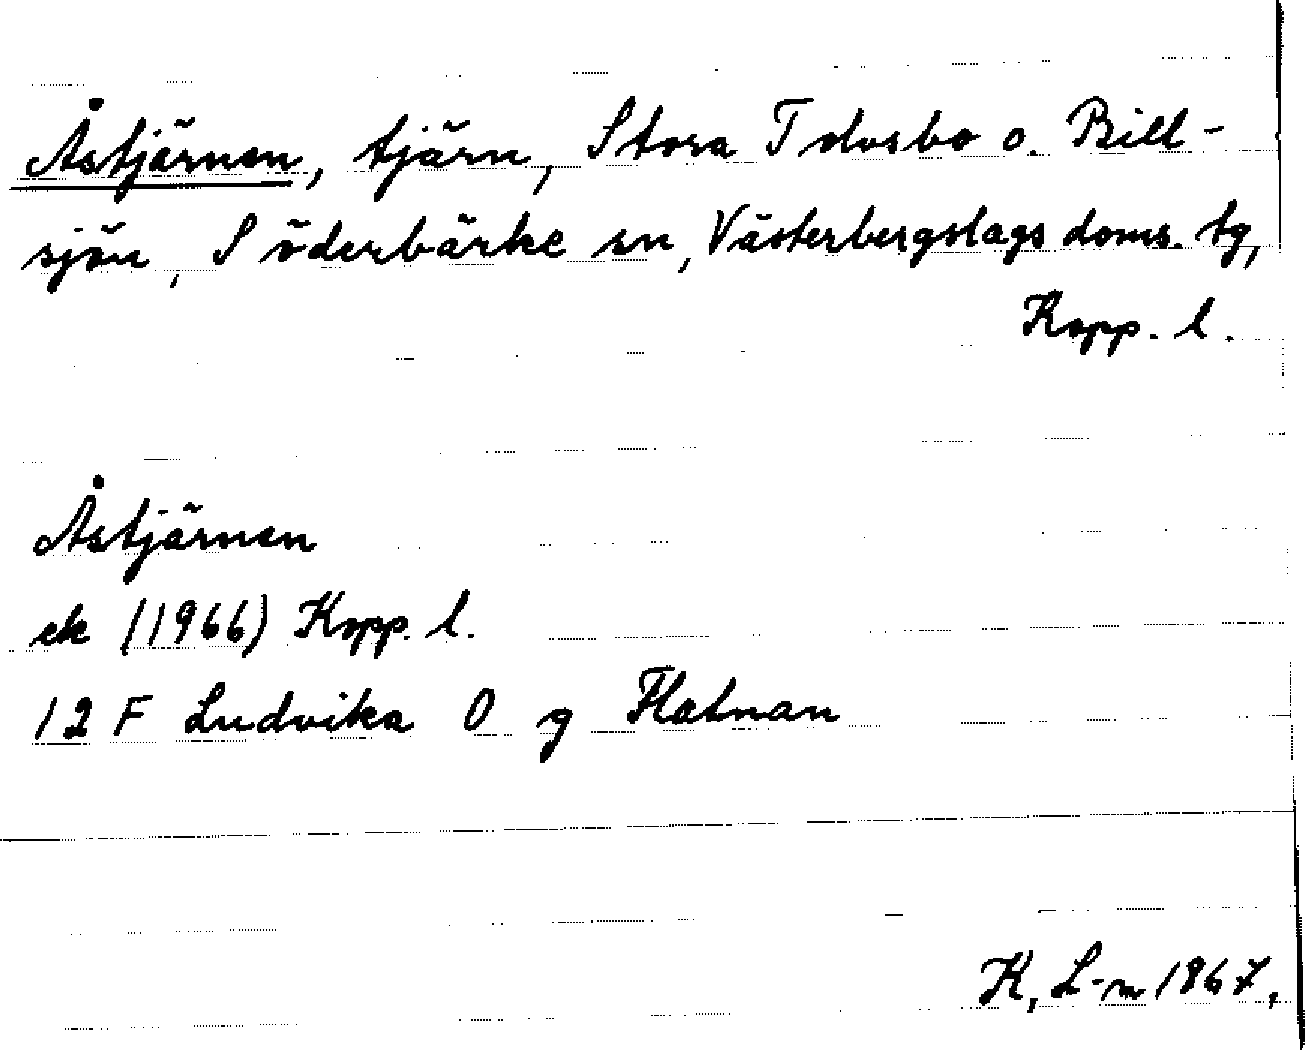 Åstjärnen, tjärn, Stora Tolvsbo o. Bill-
sjön, Söderbärke sn, Västerbergslags doms. tg,
Kopp. l.
Åstjärnen
ek (1966) Kopp. l.
12 F Ludvika O g Flatnan
K, L-m 1867.